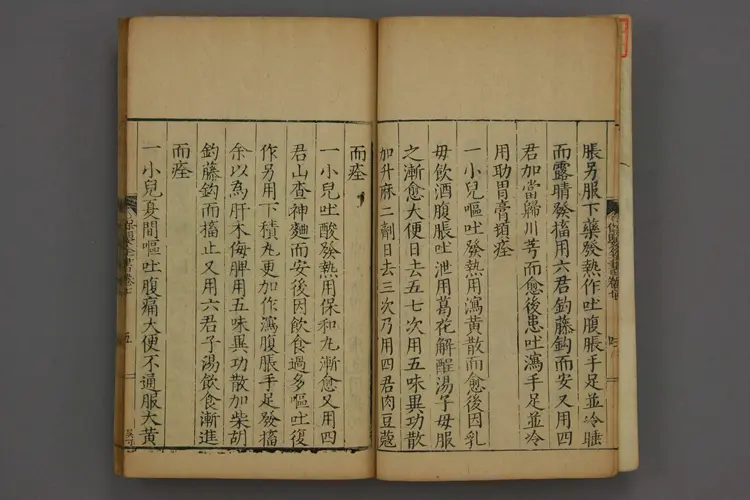 脹另服下藥發熱作吐腹脹手足並冷睡
而露睛發搐用六君鈎藤鈎而安又用四
君加當歸川芎而愈後患吐瀉手足並冷
用助胃膏頓痊
一小兒嘔吐發熱用瀉黃散而愈後因乳
毋飲酒腹脹吐泄用葛花解酲湯子母服
之漸愈大便日去五七次用五味異功散
加升麻二劑日去三次乃用四君肉豆蔻
而痊
一小兒吐酸發熱用保和丸漸愈又用四
君山查神麯而安後因飲食過多嘔吐復
作另用下積丸更加作瀉腹脹手足發搐
余以為肝木侮脾用五味異功散加柴胡
鈎藤鈎而搐止又用六君子湯飲食漸進
而痊
一小兒夏間嘔吐腹痛大便不通服大黃
保嬰全書卷七
五